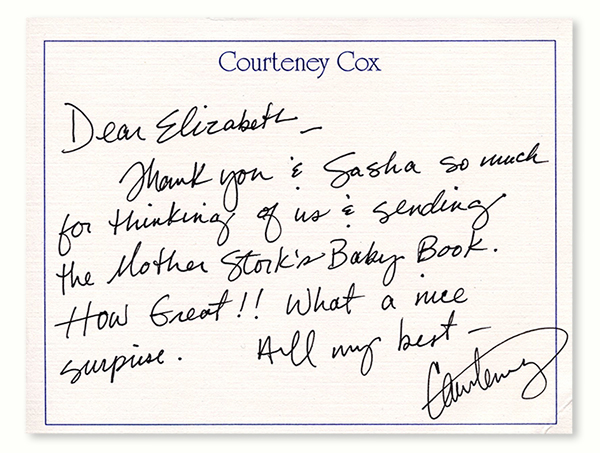 Courteney Cox
Dear Elizabeth –
Thank you & Sasha so much
for thinking of us & sending
the Mother Stork's Baby Book.
How Great!! What a nice
surprise. All my best –
Courteney